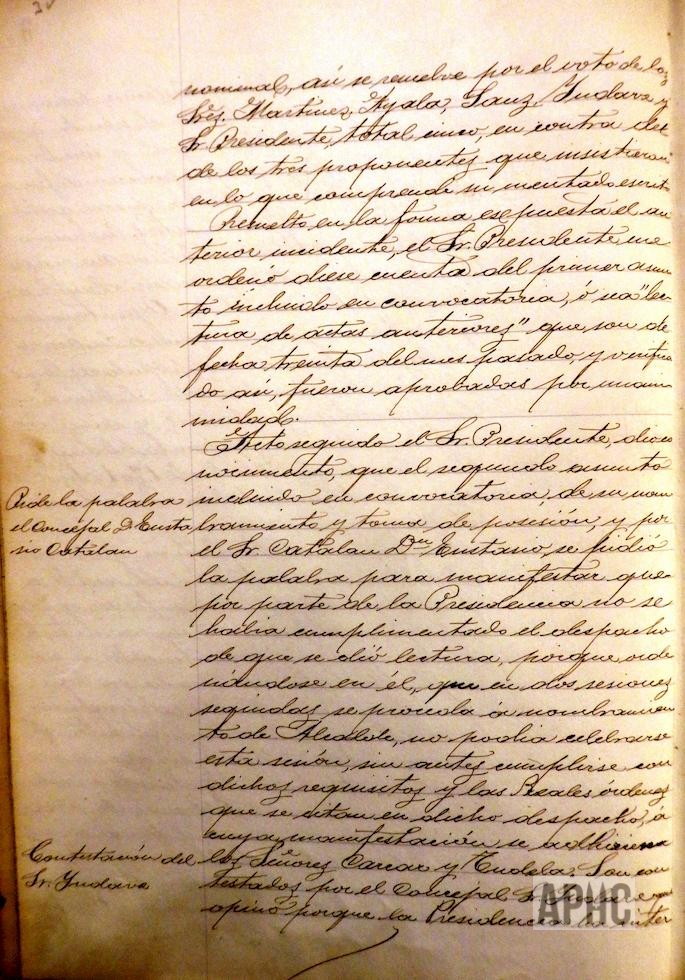 nominal, así se resuelve por el voto de los
Srēs. Martinez, Ayala, Sanz, Yudava y
Sr. Presidente, total cinco, en contra del
de los tres proponentes que insistieron
en lo que comprende su mentado escrito
Resuelto en la forma espuesta el an
terior incidente, el Sr. Presidente, me
ordenó diese cuenta del primer asun
to incluido en convocatoria, ó sea "lec
tura de actas anteriores" que son de
fecha treinta del mes pasado, y verifica
do así, fueron aprobadas por unani
midad.
Acto seguido el Sr. Presidente, dió co
nocimiento, que el segundo asunto
incluido en convocatoria, de su nom
bramiento y toma de posesión, y por
el Sr. Catalan Dn Eustasio, se pidió
la palabra para manifestar que
por parte de la Presidencia no se
habia cumplimentado el despacho
de que se dió lectura, porque orde
nándose en él, que en dos sesiones
seguidas se proceda á nombramien
to de Alcalde, no podia celebrarse
esta sesión, sin antes cumplirse con
dichos requisitos y las Reales órdenes
que se citan en dicho despacho, á
cuya manifestación se adhirieron
los Señores Carcar y Tudela. Son con
testados por el Concejal Sr. Yudava que
opinó porque la Presidencia ha inter
Pide la palabra
el Concejal Dn Eusta
sio Catalan
Contestación del
Sr. Yudava
APHC